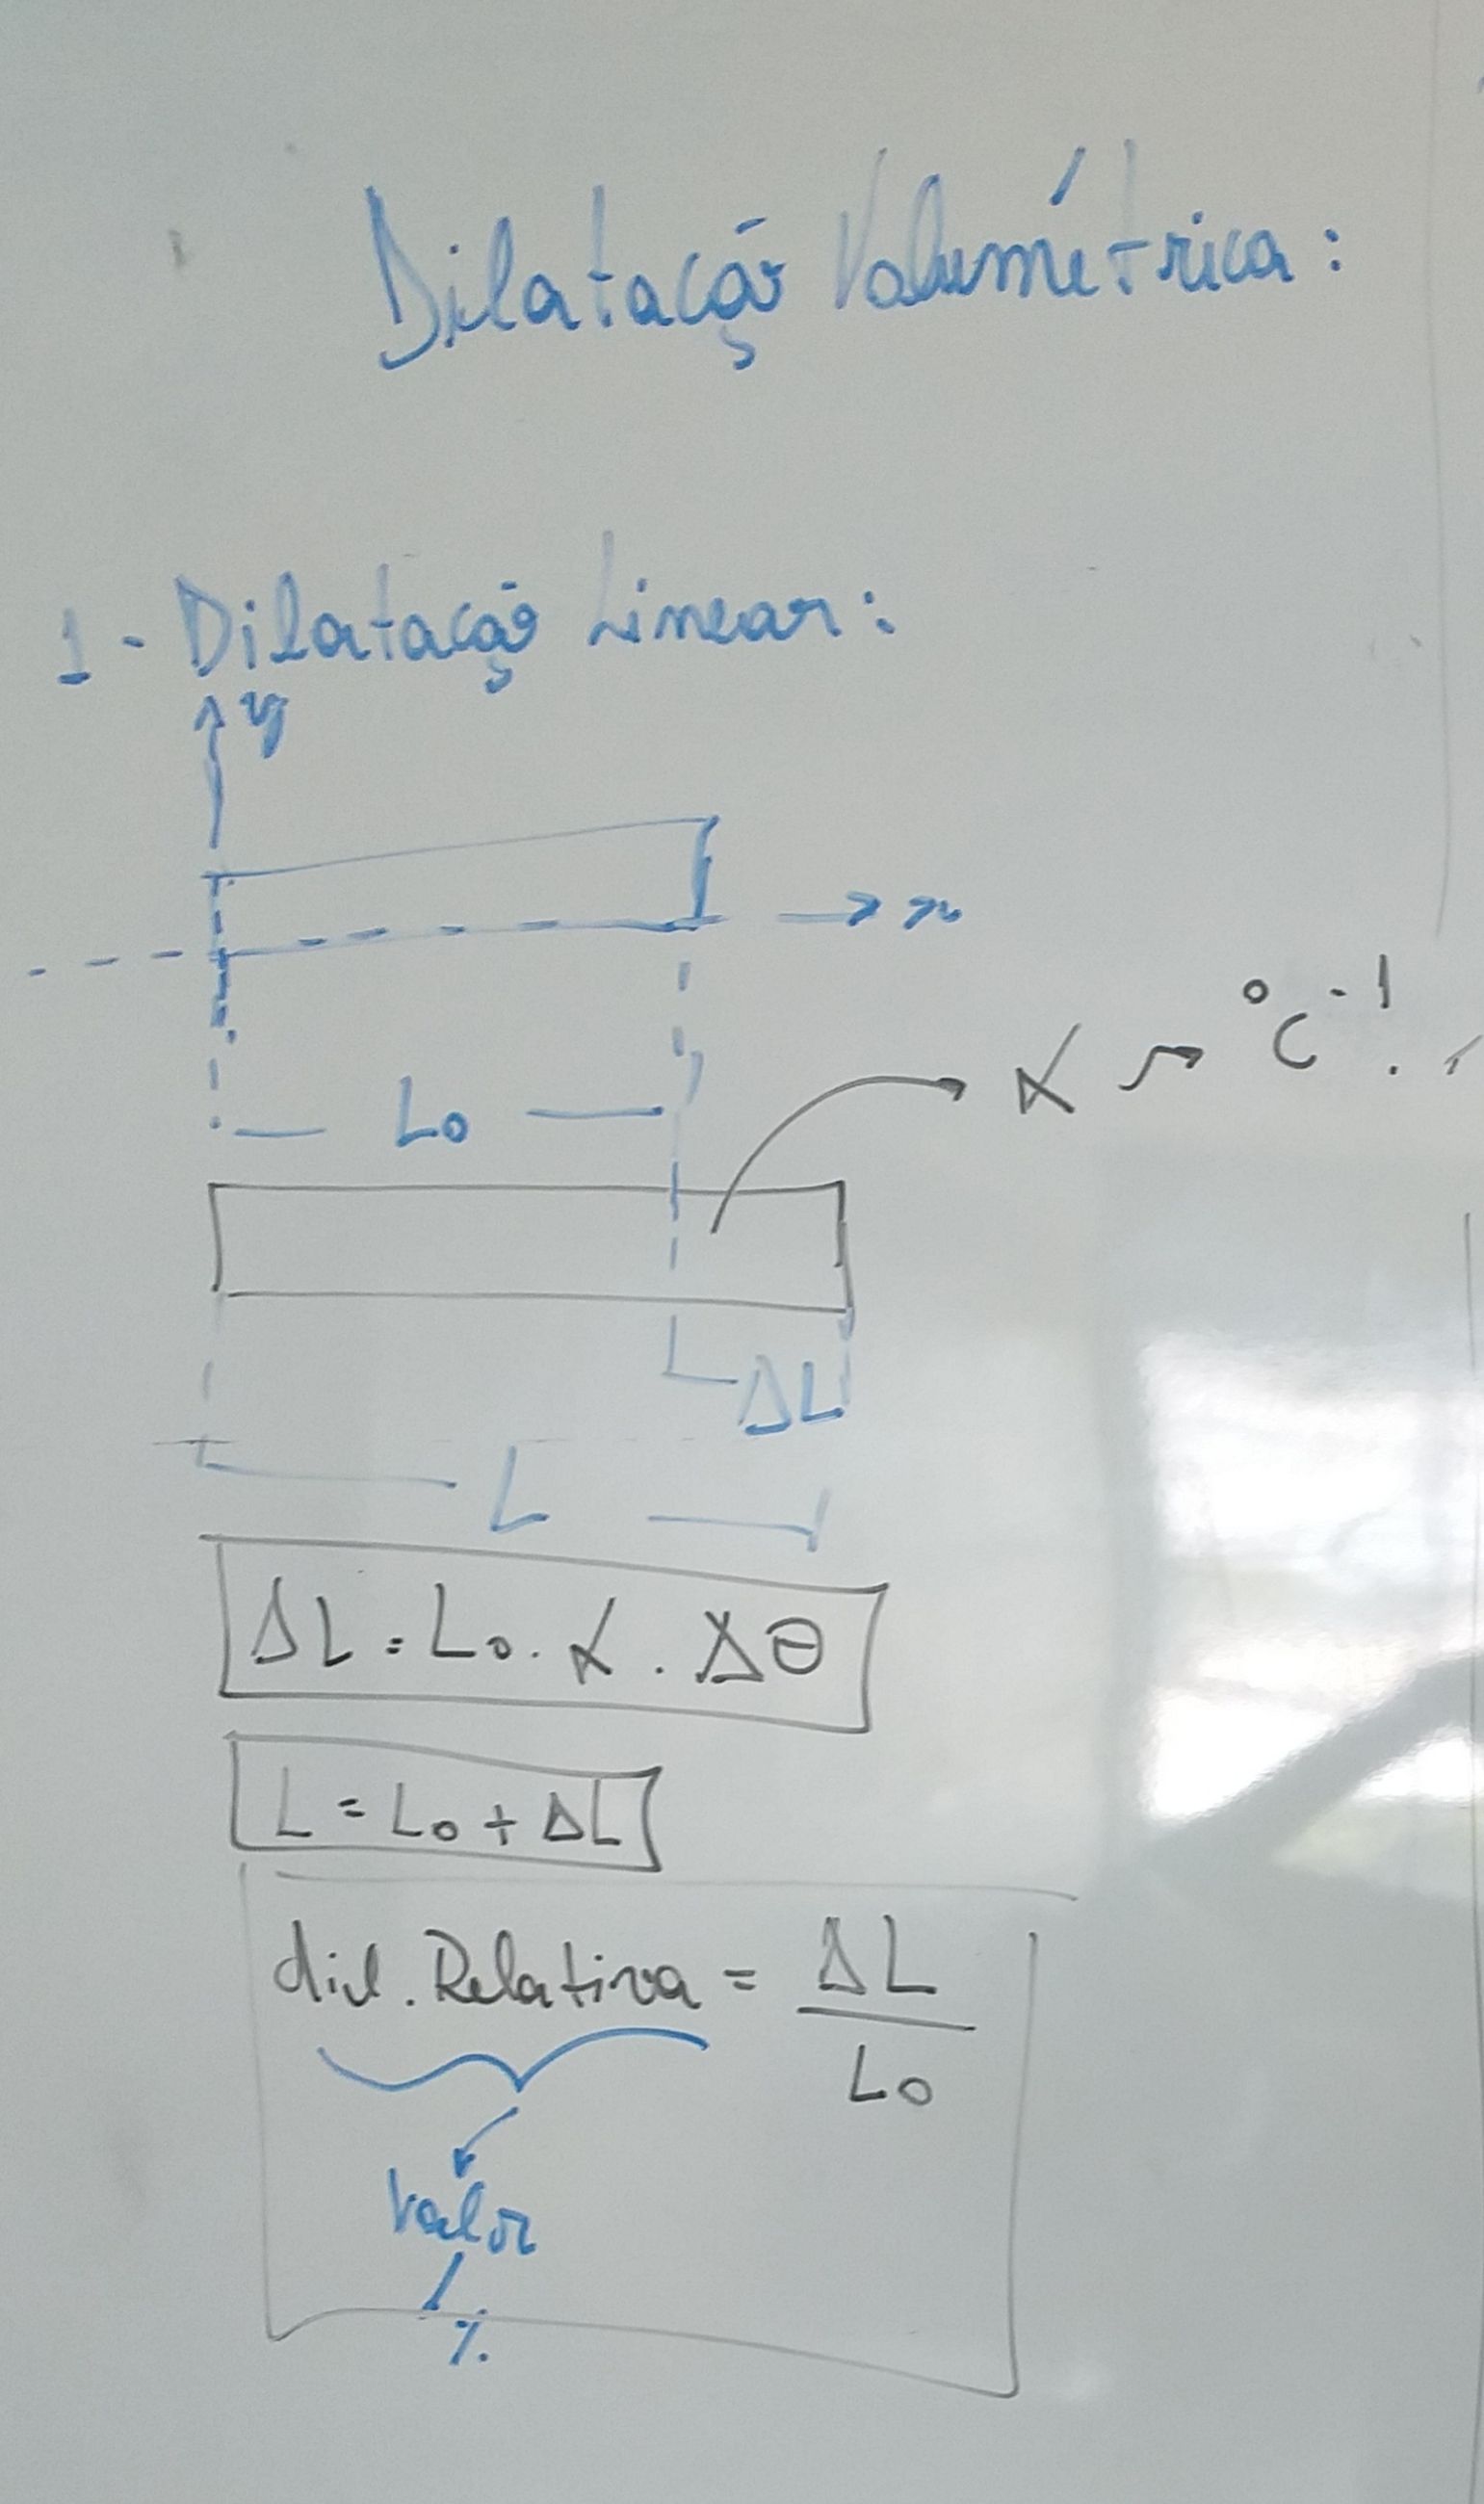 Dilatação Volumétrica:
1 - Dilatação Linear:
y
x
α → °C⁻¹.
L₀
ΔL
L
ΔL = L₀ . α . Δθ
L = L₀ + ΔL
dil. Relativa = ΔL
L₀
Valor
%